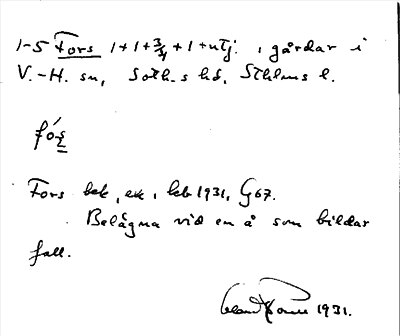 1-5 Fors 1+1+3/4+1+utj. , gårdar i
V.-H. sn, Soth.s hd, Sthlms l.
fóṣ
Fors bek, ek, i kb 1931, G 67.
Belägna vid en å som bildar
fall.
1931.